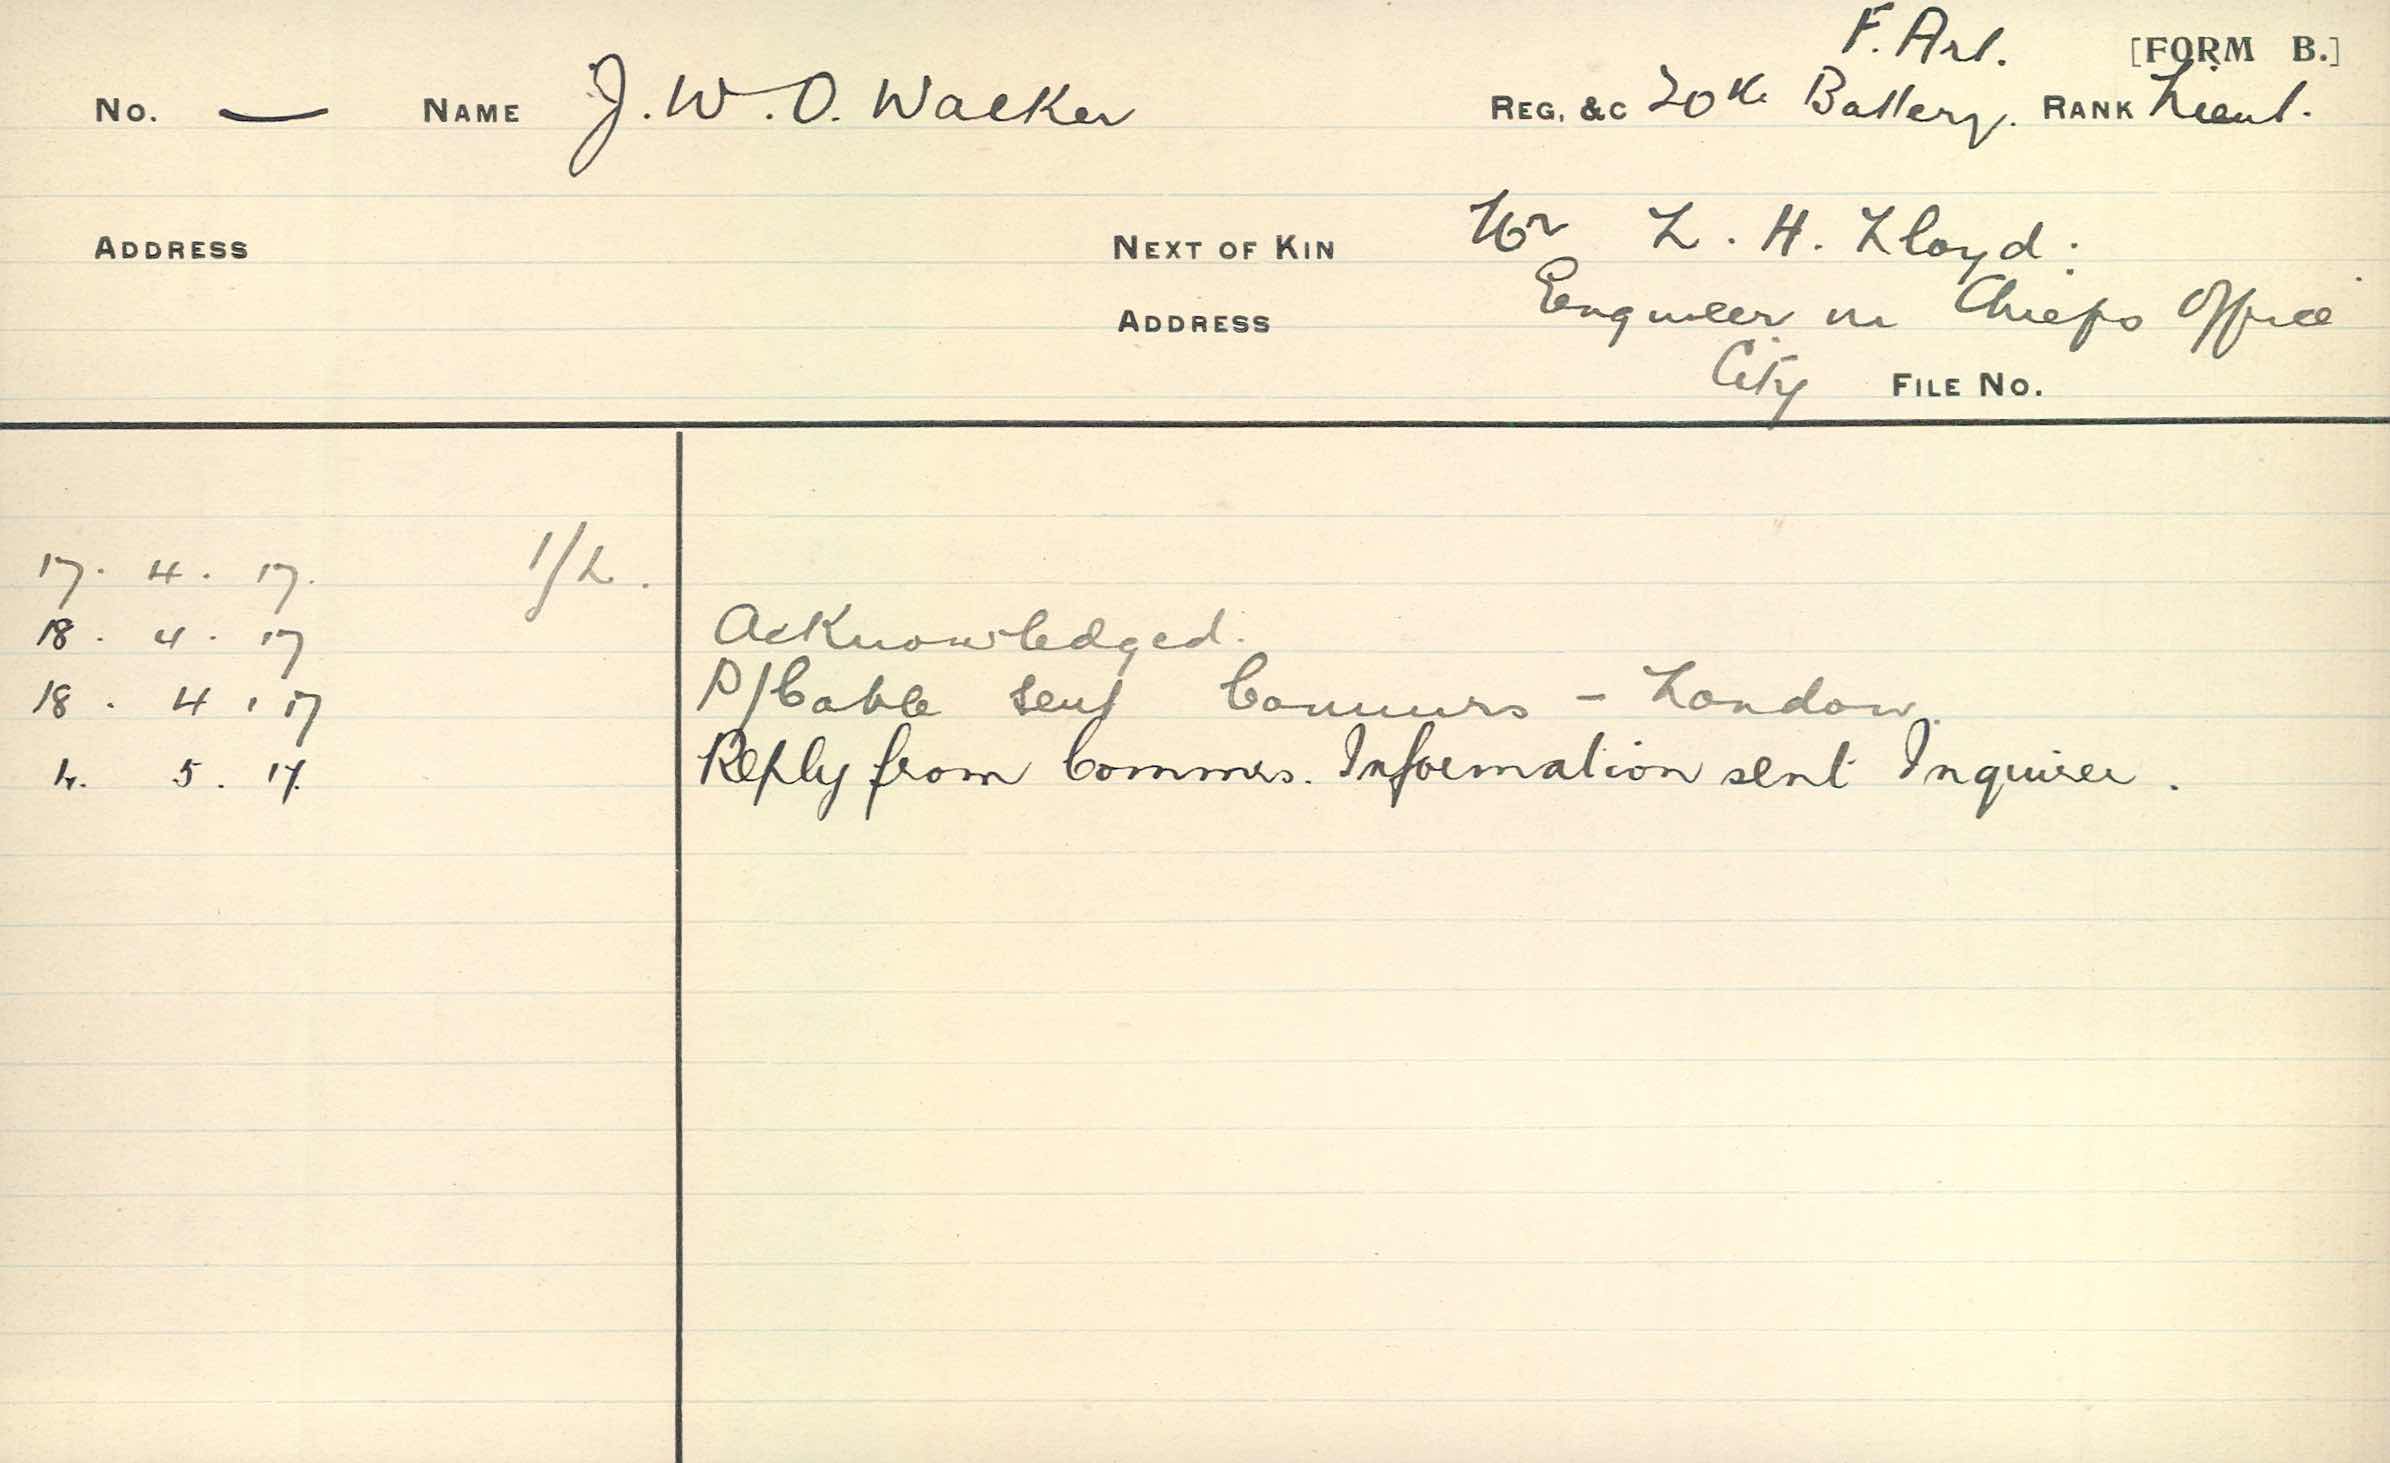 F. Art. [FORM B.]
No. — NAME J. W. O. Walker REG. &C 20th Battery. RANK Lieut.
ADDRESS NEXT OF KIN Mr L. H. Lloyd:
ADDRESS Engineer in Chiefs Office
City FILE No.
17. 4. 17. 1/L.
18. 4. 17 Acknowledged.
18. 4. 17 P/Cable sent Commrs - London.
4. 5. 17. Reply from Commrs. Information sent Inquirer.